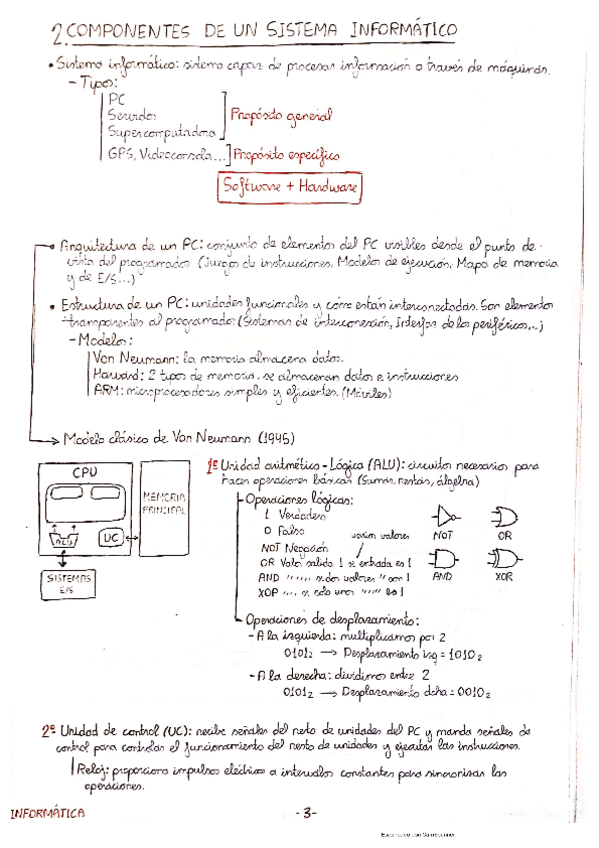 2. COMPONENTES DE UN SISTEMA INFORMÁTICO
• Sistema informático: sistema capaz de procesar información a través de máquinas.
- Tipos:
PC
Servidor
Supercomputadora
Propósito general
GPS, Videoconsola... Propósito específico
Software + Hardware
• Arquitectura de un PC: conjunto de elementos del PC visibles desde el punto de
vista del programador (Juegos de instrucciones, Modelos de ejecución, Mapa de memoria
y de E/S...)
• Estructura de un PC: unidades funcionales y como estan interconectadas. Son elementos
transparentes al programador (Sistemas de interconexión, Interfaz de los periféricos,...)
- Modelos:
Von Neumann: la memoria almacena datos.
Harvard: 2 tipos de memoria, se almacenan datos e instrucciones
ARM: microprocesadores simples y eficientes. (Móviles)
Modelo clásico de Von Neumann (1945)
CPU
ALU
UC
MEMORIA
PRINCIPAL
SISTEMAS
E/S
1º Unidad aritmético-Lógica (ALU): circuitos necesarios para
hacer operaciones básicas (Sumas, restas, álgebra)
- Operaciones lógicas:
1 Verdadero
0 Falso
NOT Negación
varios valores
OR Valor salida 1 si entrada es 1
AND " " " , si dos valores " son 1
XOR " " , si solo unos " " es 1
NOT
OR
AND
XOR
- Operaciones de desplazamiento:
- A la izquierda: multiplicamos por 2
0101₂ → Desplazamiento izq = 1010₂
- A la derecha: dividimos entre 2
0101₂ → Desplazamiento dcha = 0010₂
2º Unidad de control (UC): recibe señales del resto de unidades del PC y manda señales de
control para controlar el funcionamiento del resto de unidades y ejecutar las instrucciones.
Reloj: proporciona impulsos eléctricos a intervalos constantes para sincronizar las
operaciones.
INFORMÁTICA
-3-
Escaneado con CamScanner